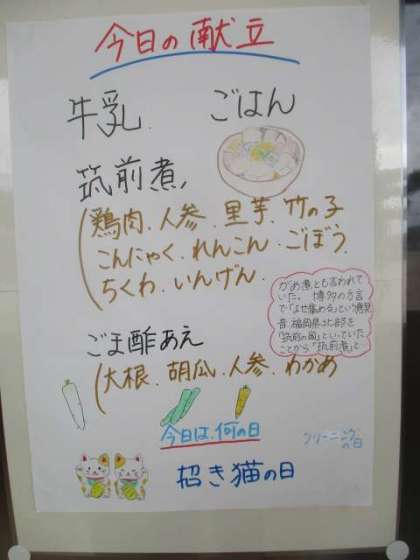 今日の献立
牛乳 ごはん
筑前煮
(鶏肉.人参.里芋.竹の子
こんにゃく.れんこん.ごぼう
ちくわ.いんげん
がめ煮とも言われて
いた。博多の方言
で「よせ集める」という意見
昔、福岡県北部を
「筑前の国」といっていた
ことから「筑前煮」と
ごま酢あえ
(大根.胡瓜.人参.わかめ
今日は、何の日
クリーニング
の日
招き猫の日